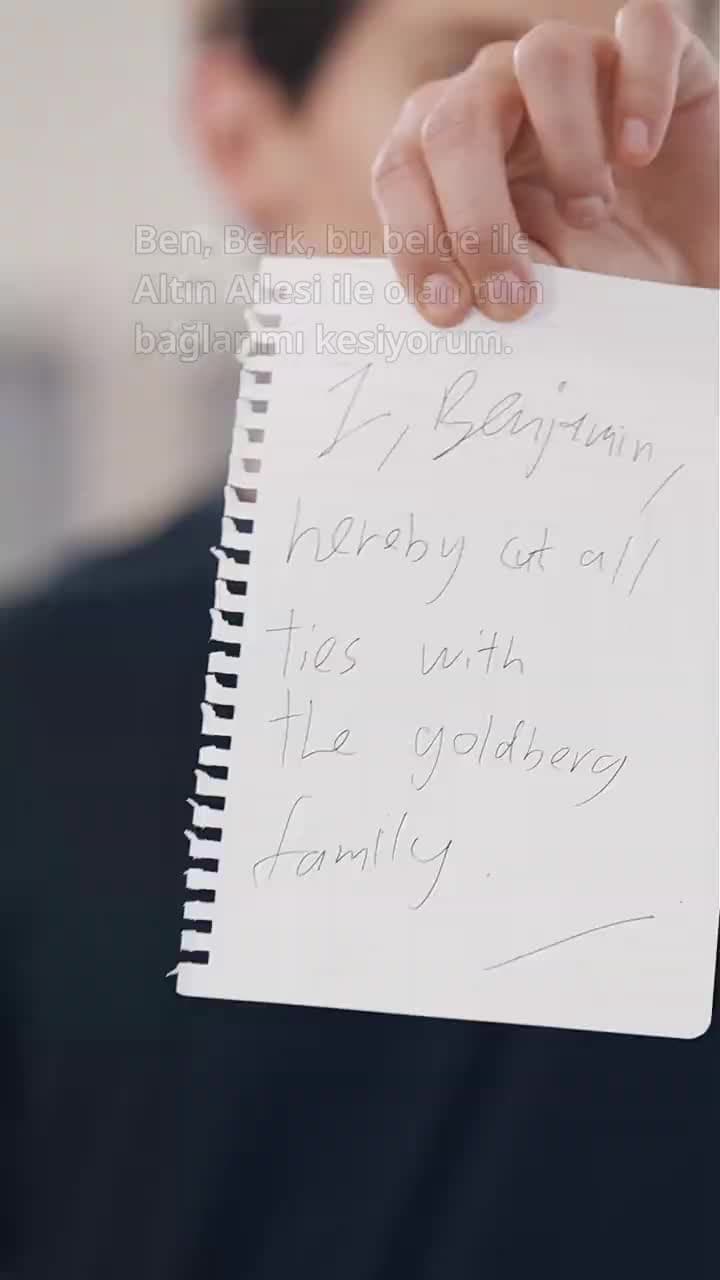 Ben, Berk, bu belge ile
Altın Ailesi ile olan tüm
bağlarımı kesiyorum.
I, Benjamin,
hereby cut all
ties with
the goldberg
family.